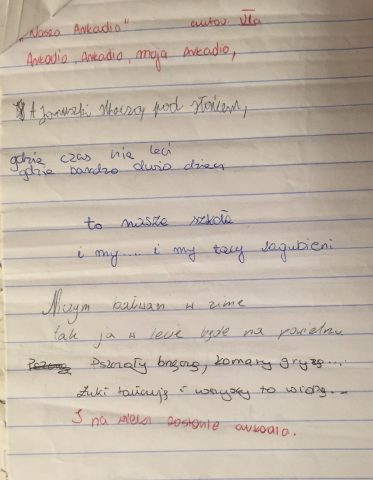 "Nasza Arkadia" autor VIa
Arkadio, Arkadio, moja Arkadio,
A Januszki skaczą pod słońcem,
gdzie czas nie leci
gdzie bardzo dużo dzieci
to nasza szkoła
i my.... i my tacy zagubieni
Niczym bałwan w zimę
tak ja w lecie będę na
Pszczoły bręczą, komary gryzą...
Żuki tańcują i wszyscy to widzą...
I na wieki zostanie arkadia.